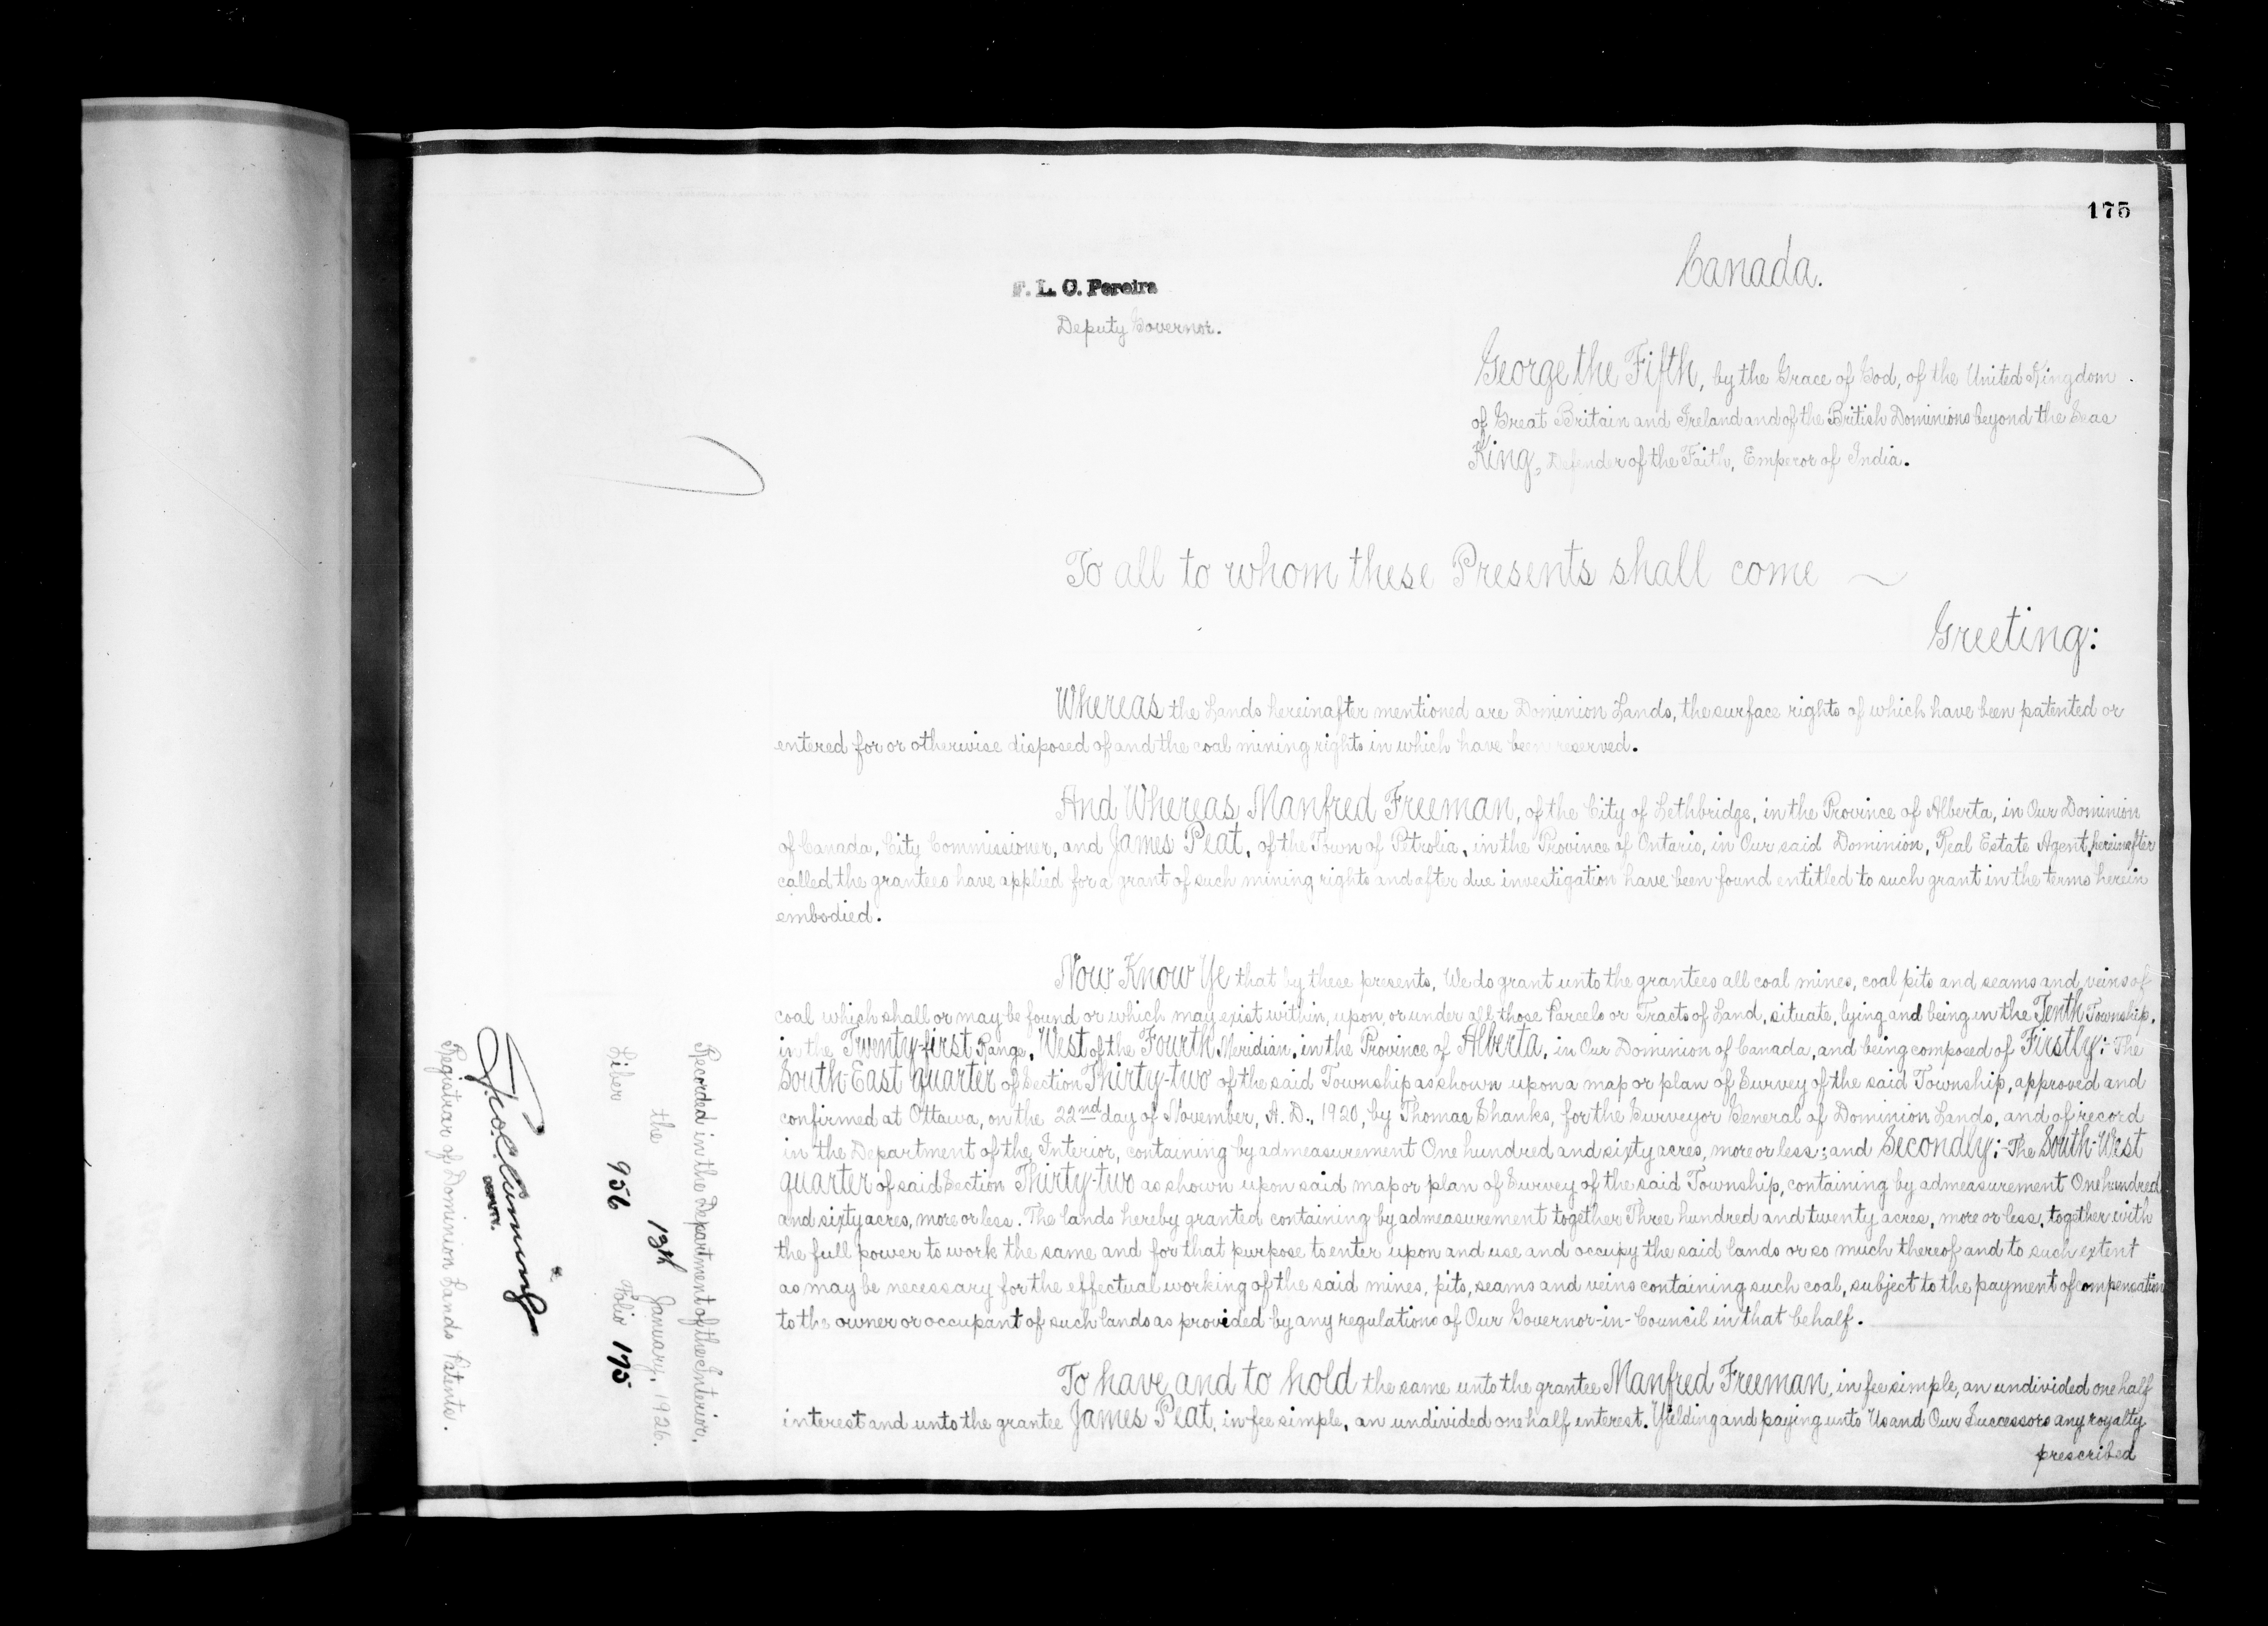 175
Canada.
F. L. C. Pereira
Deputy Governor.
George the Fifth, by the Grace of God, of the United Kingdom
of Great Britain and Ireland and of the British Dominions beyond the Seas
King, Defender of the Faith, Emperor of India.
To all to whom these Presents shall come
Greeting:
Whereas the Lands hereinafter mentioned are Dominion Lands, the surface rights of which have been patented or
entered for or otherwise disposed of and the coal mining rights in which have been reserved.
And Whereas Manfred Freeman, of the City of Lethbridge, in the Province of Alberta, in Our Dominion
of Canada, City Commissioner, and James Peat, of the Town of Petrolia, in the Province of Ontario, in Our said Dominion, Real Estate Agent, hereinafter
called the grantees have applied for a grant of such mining rights and after due investigation have been found entitled to such grant in the terms herein
embodied.
Now Know Ye that by these presents, We do grant unto the grantees all coal mines, coal pits and seams and veins of
coal which shall or may be found or which may exist within, upon, or under all those Parcels or Tracts of Land, situate, lying and being in the Tenth Township,
in the Twenty-first Range, West of the Fourth Meridian, in the Province of Alberta, in Our Dominion of Canada, and being composed of Firstly:- The
South-East quarter of Section Thirty-two of the said Township as shown upon a map or plan of Survey of the said Township, approved and
confirmed at Ottawa, on the 22nd day of November, A. D., 1920, by Thomas Shanks, for the Surveyor General of Dominion Lands, and of record
in the Department of the Interior, containing by admeasurement One hundred and sixty acres, more or less; and Secondly:- The South-West
quarter of said Section Thirty-two as shown upon said map or plan of Survey of the said Township, containing by admeasurement One hundred
and sixty acres, more or less. The lands hereby granted containing by admeasurement together Three hundred and twenty acres, more or less, together with
the full power to work the same and for that purpose to enter upon and use and occupy the said lands or so much thereof and to such extent
as may be necessary for the effectual working of the said mines, pits, seams and veins containing such coal, subject to the payment of compensation
to the owner or occupant of such lands as provided by any regulations of Our Governor-in-Council in that behalf.
To have and to hold the same unto the grantee Manfred Freeman, in fee simple, an undivided one half
interest and unto the grantee James Peat, in fee simple, an undivided one half interest. Yielding and paying unto Us and Our Successors any royalty
prescribed
Recorded in the Department of the Interior,
the 13th January, 1926.
Liber 956 Folio 175
DEPUTY.
Registrar of Dominion Lands Patents.